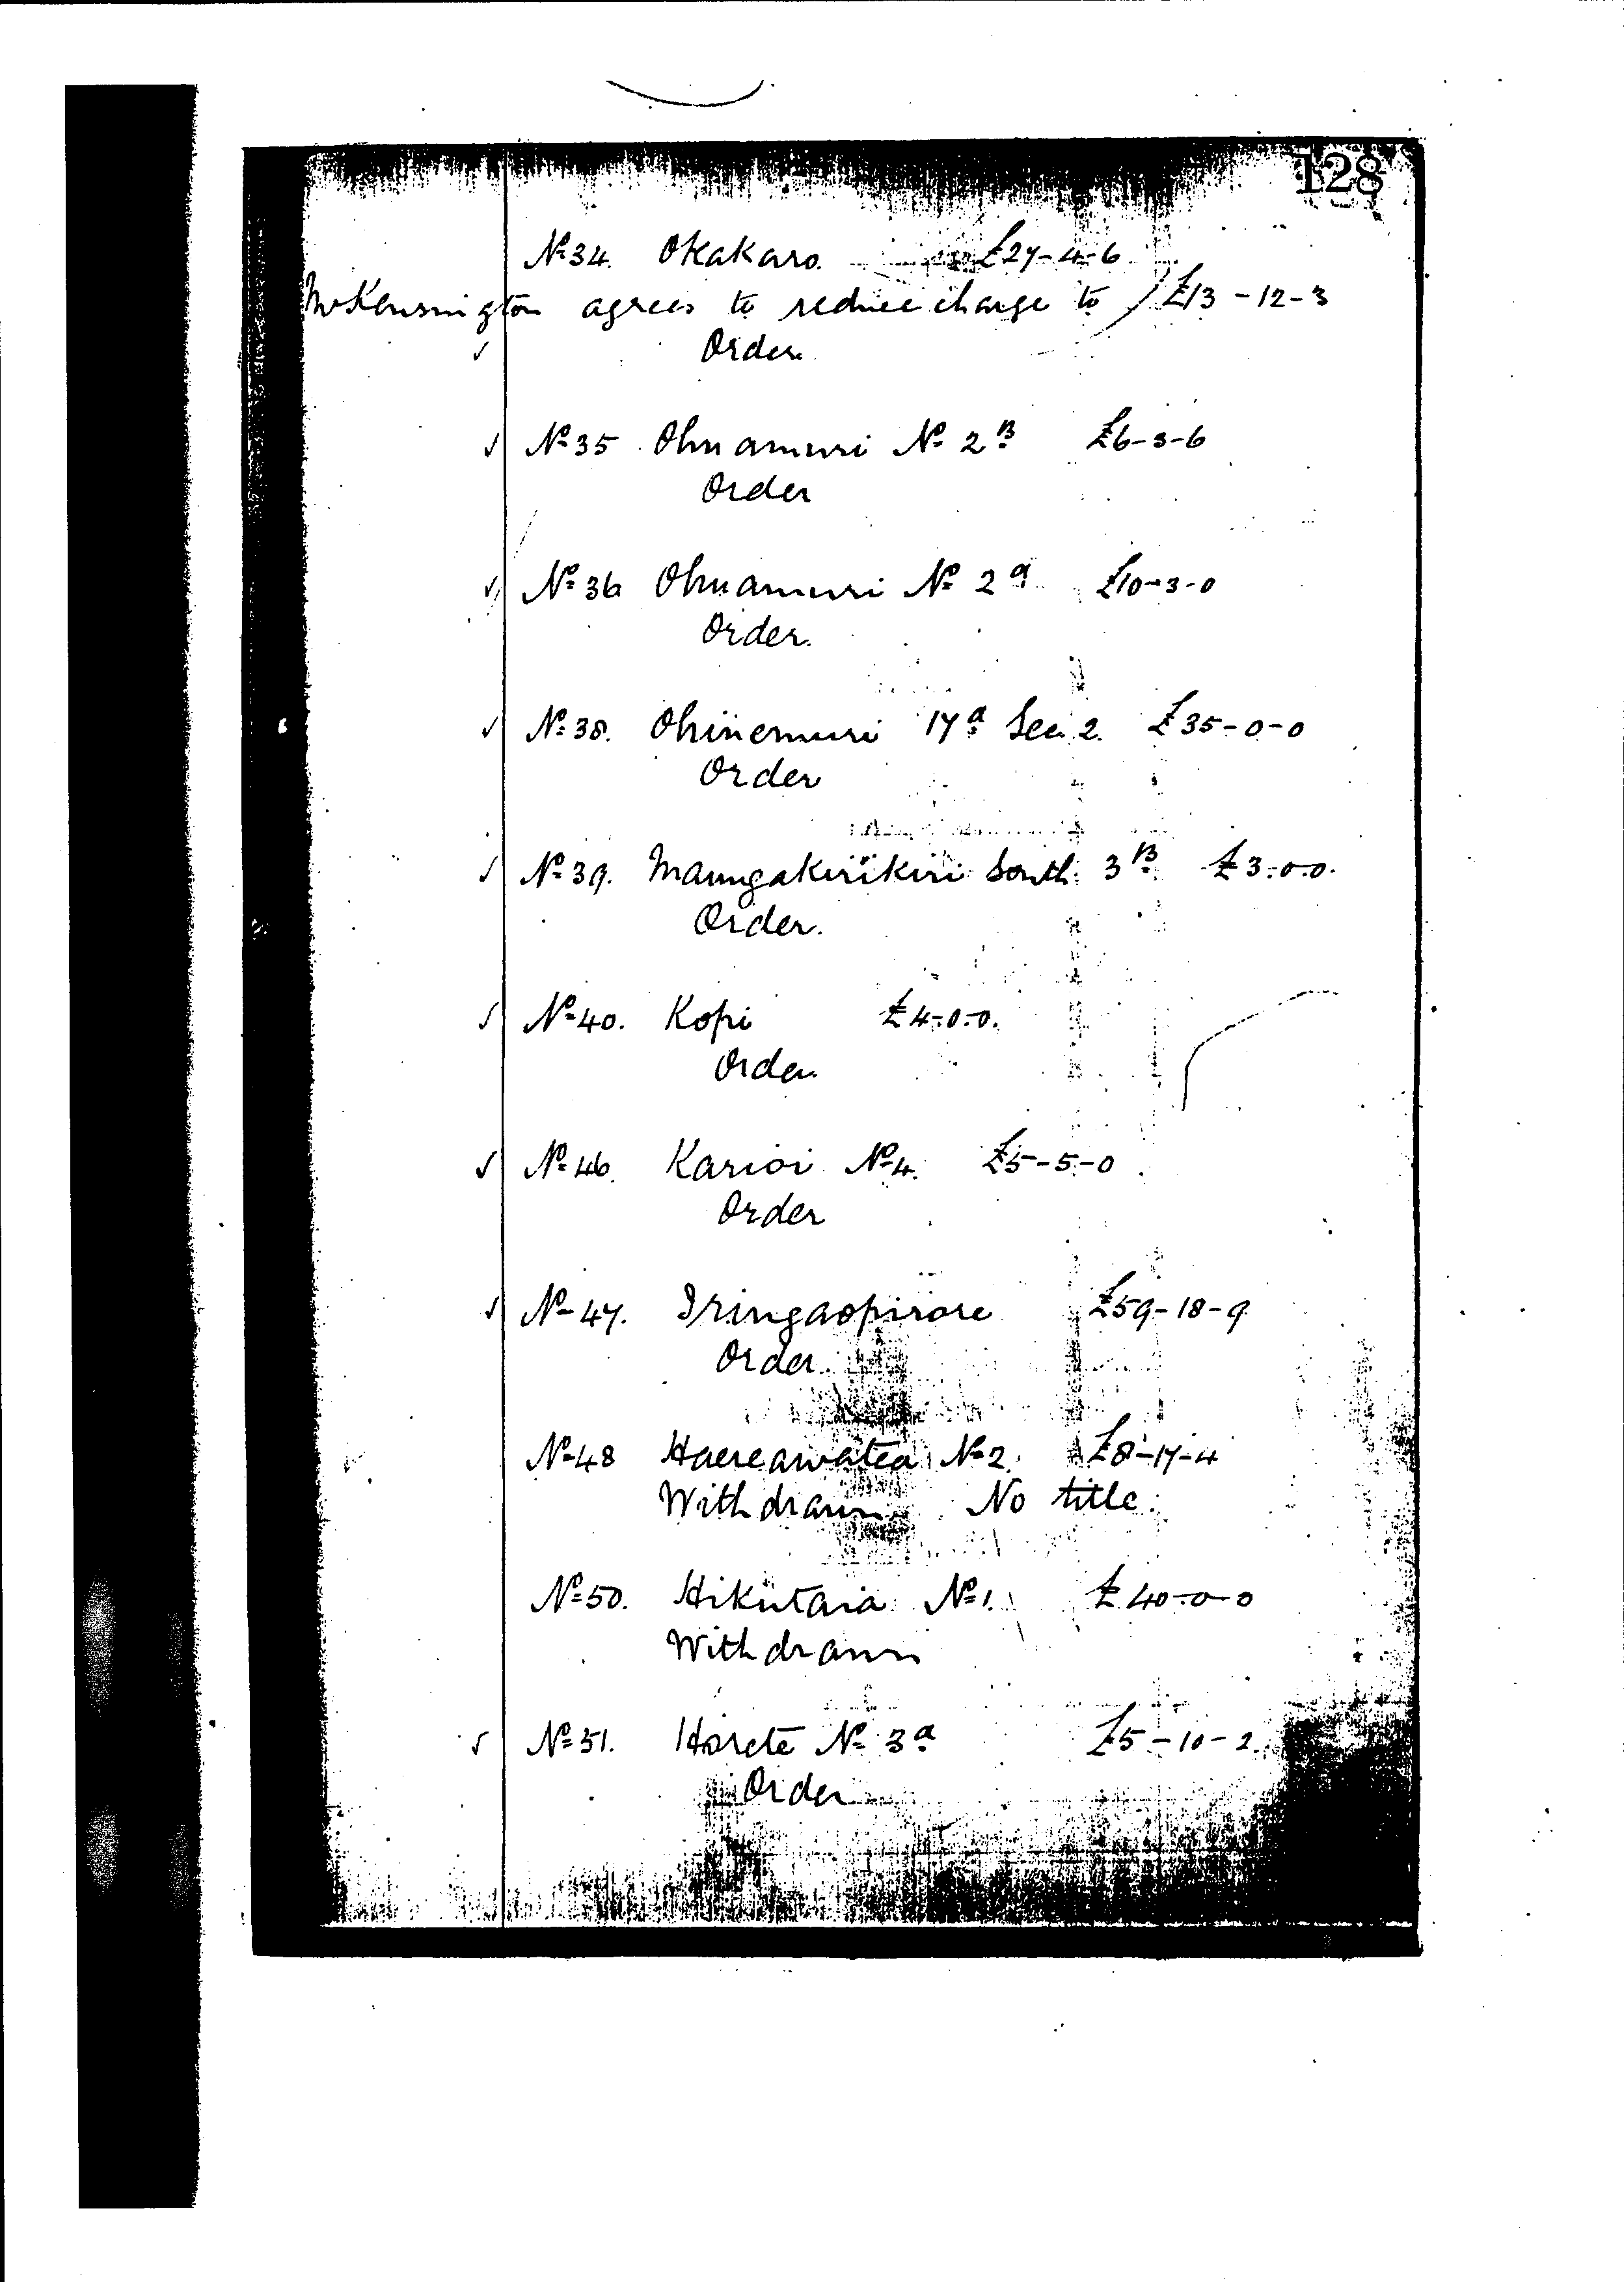 128
No 34. Okakaro. £27-4-6
Mr Kensington agrees to reduce charge to £13-12-3
✓ Order
✓ No 35 Ohuamuri No 2B £6-3-6
Order
✓ No 36 Ohuamuri No 2a £10-3-0
Order.
✓ No 38. Ohinemuri 17a Sec 2. £35-0-0
Order
✓ No 39. Maungakirikiri South 3B £3-0-0.
Order.
✓ No 40. Kopi £4-0-0.
Order
✓ No 46. Karioi No 4. £5-5-0
Order
✓ No 47. Iringaopirore £59-18-9
Order.
No 48 Haereawatea No 2. £8-17-4
Withdrawn No title.
No 50. Hikutaia No 1. £40-0-0
Withdrawn
✓ No 51. Horete No 3a £5-10-2.
Order